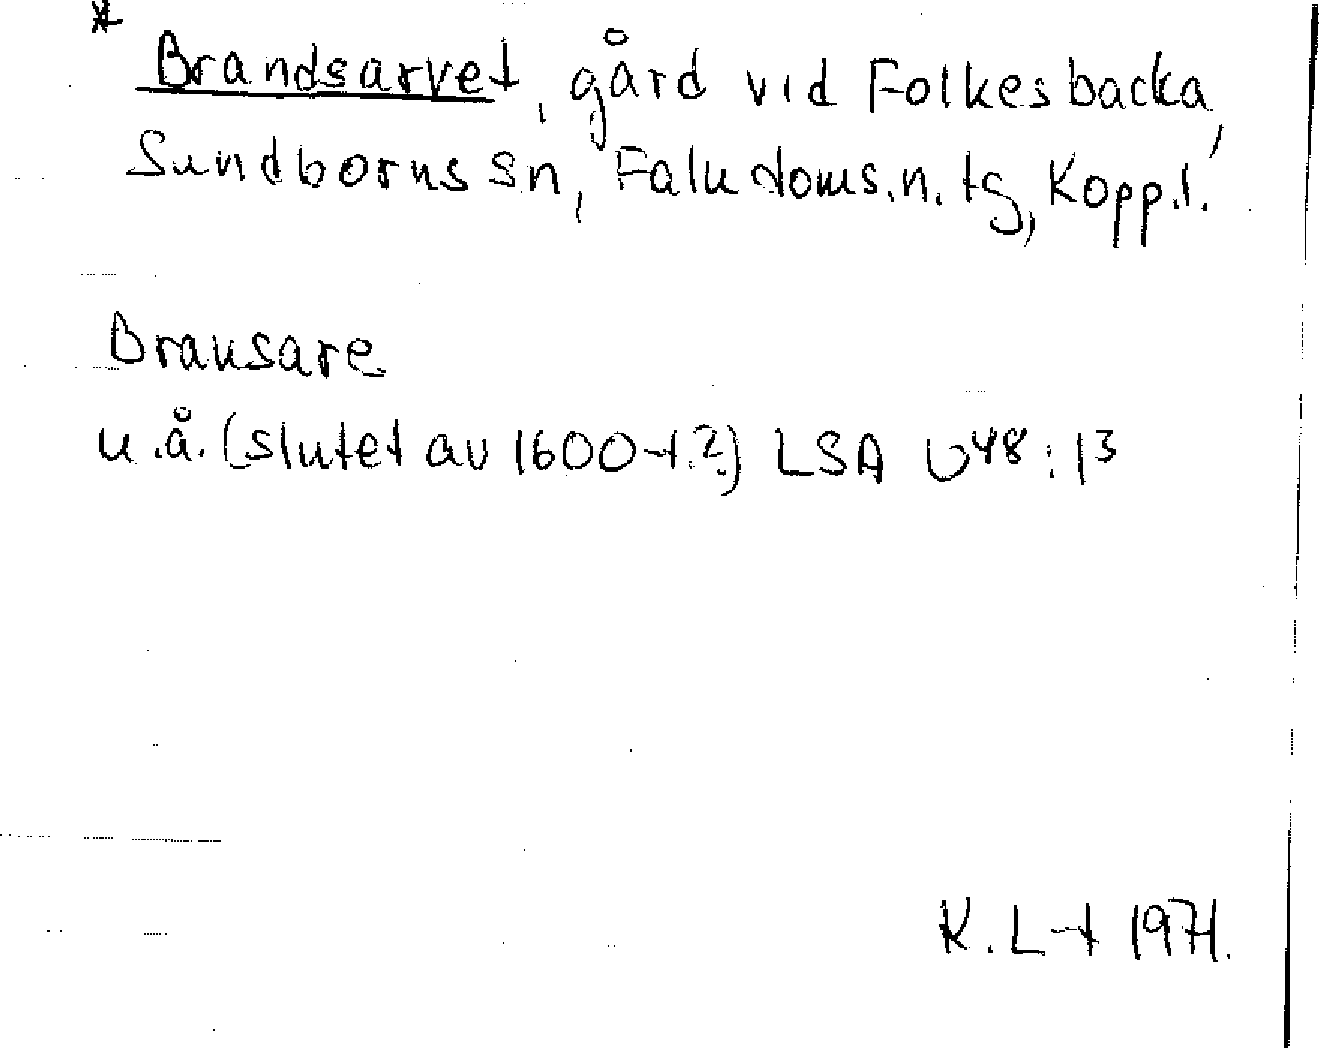 * Brandsarvet, gård vid Folkesbacka,
Sundborns sn, Falu doms.n. tg, Kopp.l.
Bransare
u.å. (slutet av 1600-t.?) LSA U48:13
K. L-t 1971.